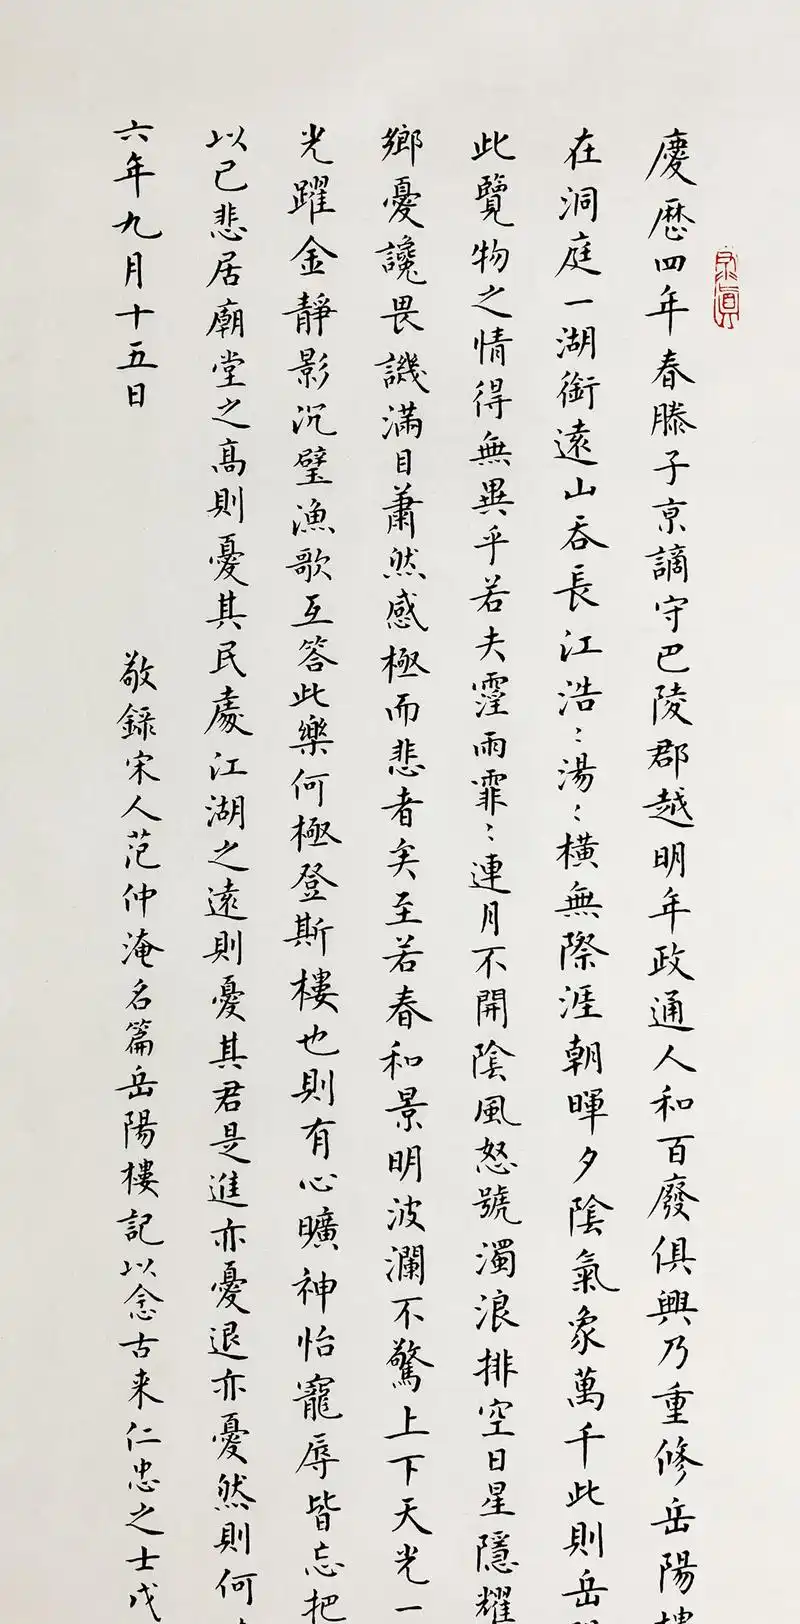 慶歷四年春滕子京謫守巴陵郡越明年政通人和百廢俱興乃重修岳陽樓
在洞庭一湖銜遠山吞長江浩〻湯〻橫無際涯朝暉夕陰氣象萬千此則岳
此覽物之情得無異乎若夫霪雨霏〻連月不開陰風怒號濁浪排空日星隱耀
鄉憂讒畏譏滿目蕭然感極而悲者矣至若春和景明波瀾不驚上下天光一
光躍金靜影沉璧漁歌互答此樂何極登斯樓也則有心曠神怡寵辱皆忘把
以己悲居廟堂之高則憂其民處江湖之遠則憂其君是進亦憂退亦憂然則何
六年九月十五日 敬錄宋人范仲淹名篇岳陽樓記以念古来仁忠之士戊